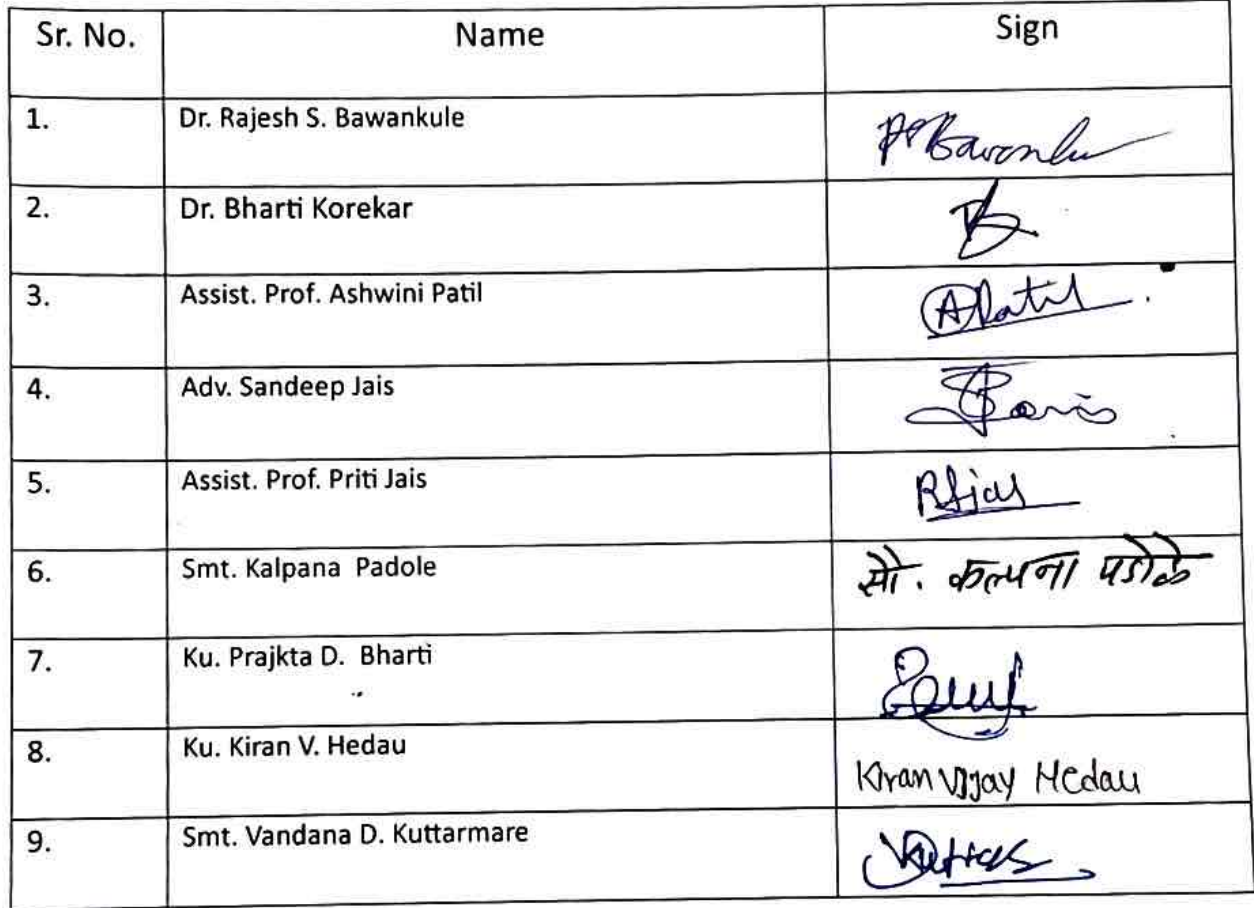 Sr. No. Name Sign
1. Dr. Rajesh S. Bawankule
2. Dr. Bharti Korekar
3. Assist. Prof. Ashwini Patil APatil
4. Adv. Sandeep Jais
5. Assist. Prof. Priti Jais
6. Smt. Kalpana Padole सौ. कल्पना पडोळे
7. Ku. Prajkta D. Bharti
8. Ku. Kiran V. Hedau Kiran Vijay Hedau
9. Smt. Vandana D. Kuttarmare